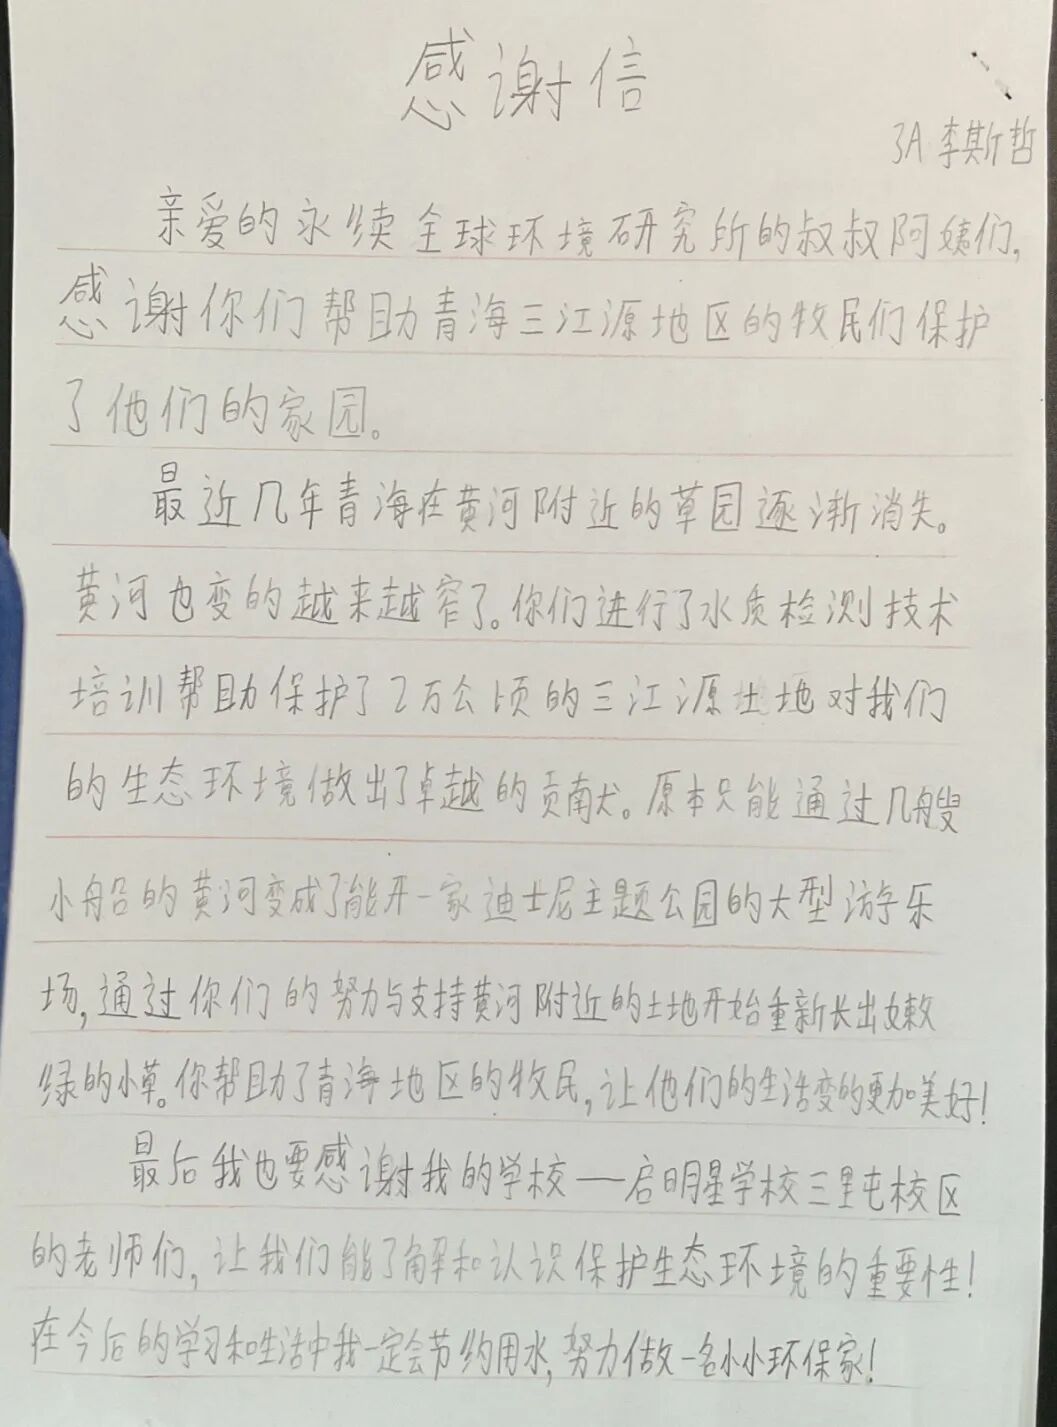 感谢信
3A 李斯哲
亲爱的永续全球环境研究所的叔叔阿姨们,
感谢你们帮助青海三江源地区的牧民们保护
了他们的家园。
最近几年青海在黄河附近的草园逐渐消失。
黄河也变的越来越窄了。你们进行了水质检测技术
培训帮助保护了2万公顷的三江源土地对我们
的生态环境做出了卓越的贡献。原本只能通过几艘
小船的黄河变成了能开一家迪士尼主题公园的大型游乐
场,通过你们的努力与支持黄河附近的土地开始重新长出嫩
绿的小草。你帮助了青海地区的牧民,让他们的生活变的更加美好!
最后我也要感谢我的学校——启明星学校三里屯校区
的老师们,让我们能了解和认识保护生态环境的重要性!
在今后的学习和生活中我一定会节约用水,努力做一名小小环保家!